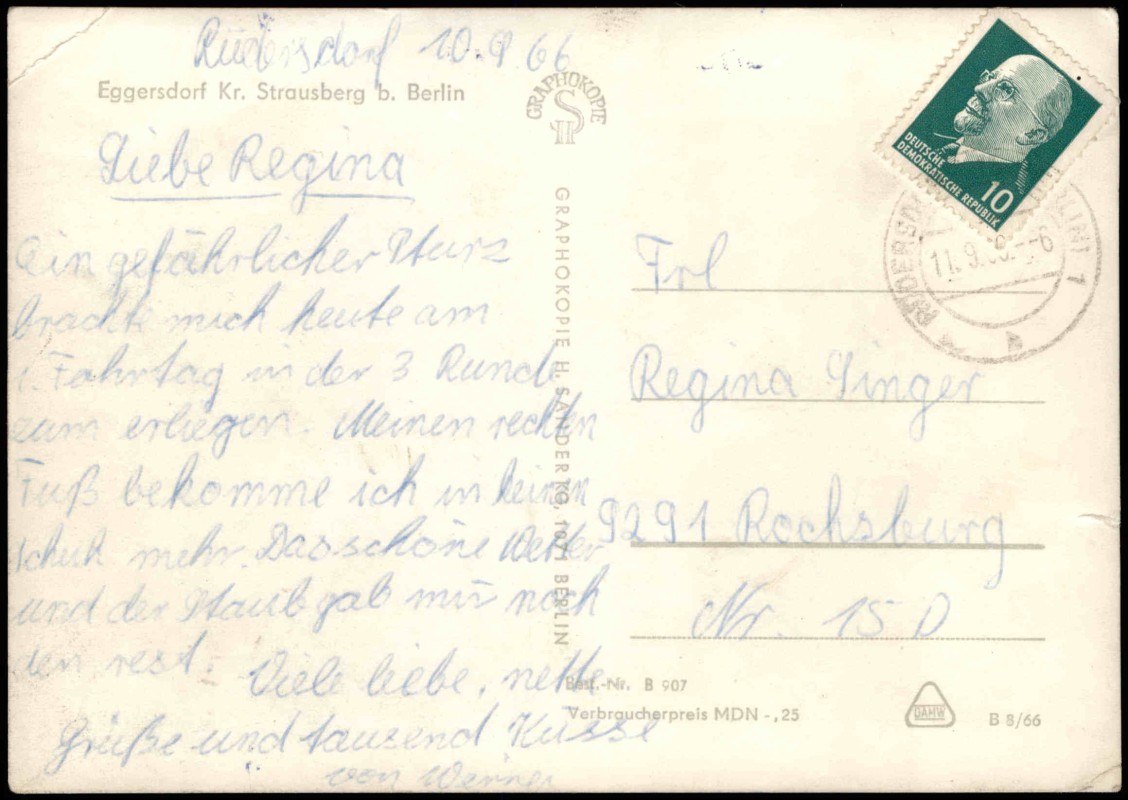 Rüdersdorf 10.9.66
Eggersdorf Kr. Strausberg b. Berlin
Liebe Regina
Ein gefährlicher Sturz
brachte mich heute am
1. Fahrtag in der 3 Runde
zum erliegen. Meinen rechten
Fuß bekomme ich in keinen
Schuh mehr. Das schöne Wetter
und der Staub gab mir noch
den rest.
Viele liebe, nette
Grüße und tausend Küsse
von Werner
GRAPHOKOPIE
GRAPHOKOPIE H. SANDER KG, BERLIN
DEUTSCHE
DEMOKRATISCHE REPUBLIK
10
11.9.66
1
Frl
Regina Singer
9291 Rochsburg
Nr. 15 D
Best.-Nr. B 907
Verbraucherpreis MDN -,25
DAHW
B 8/66